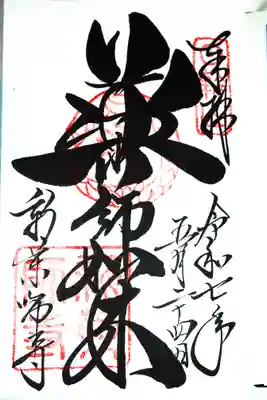 奉拝
令和七年
五月二十四日
薬師如来
新薬師寺